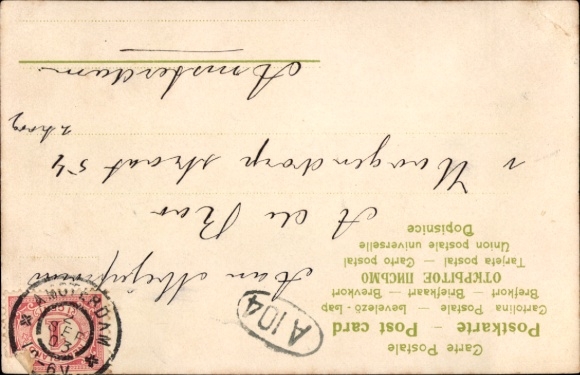 Carte Postale
Postkarte — Post card
Cartolina — Postale — Levelező-Lap
Brefkort — Briefkaart — Brevkort
ОТКРЫТОЕ ПИСЬМО
Tarjeta postal — Carto postal
Union postale universelle
Dopisnice
A 104
AMSTERDAM
Aan
A de
straat 54
2 hoog
Amsterdam